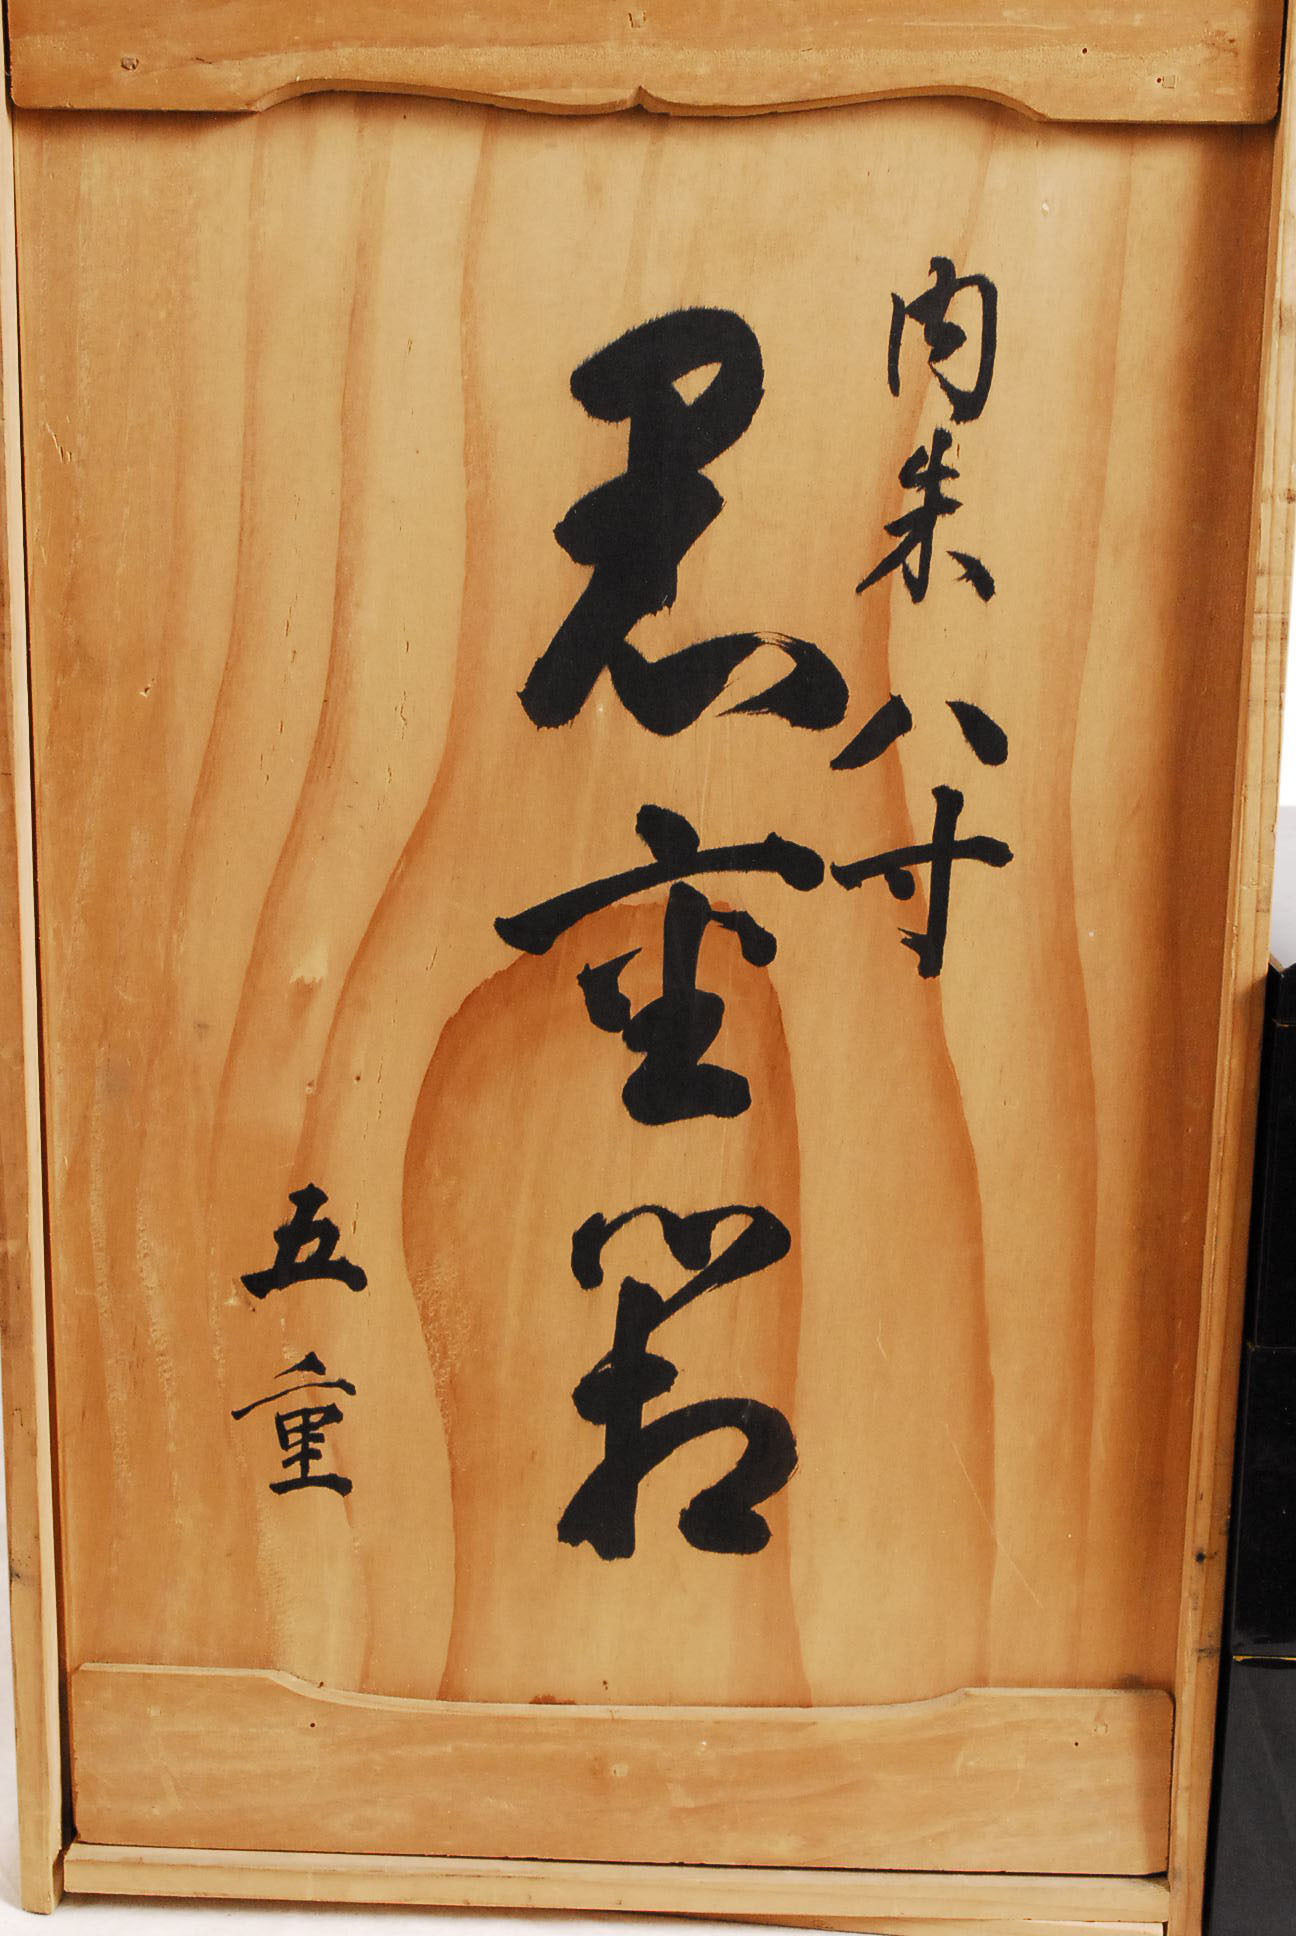 内朱八寸
黒重箱
五重